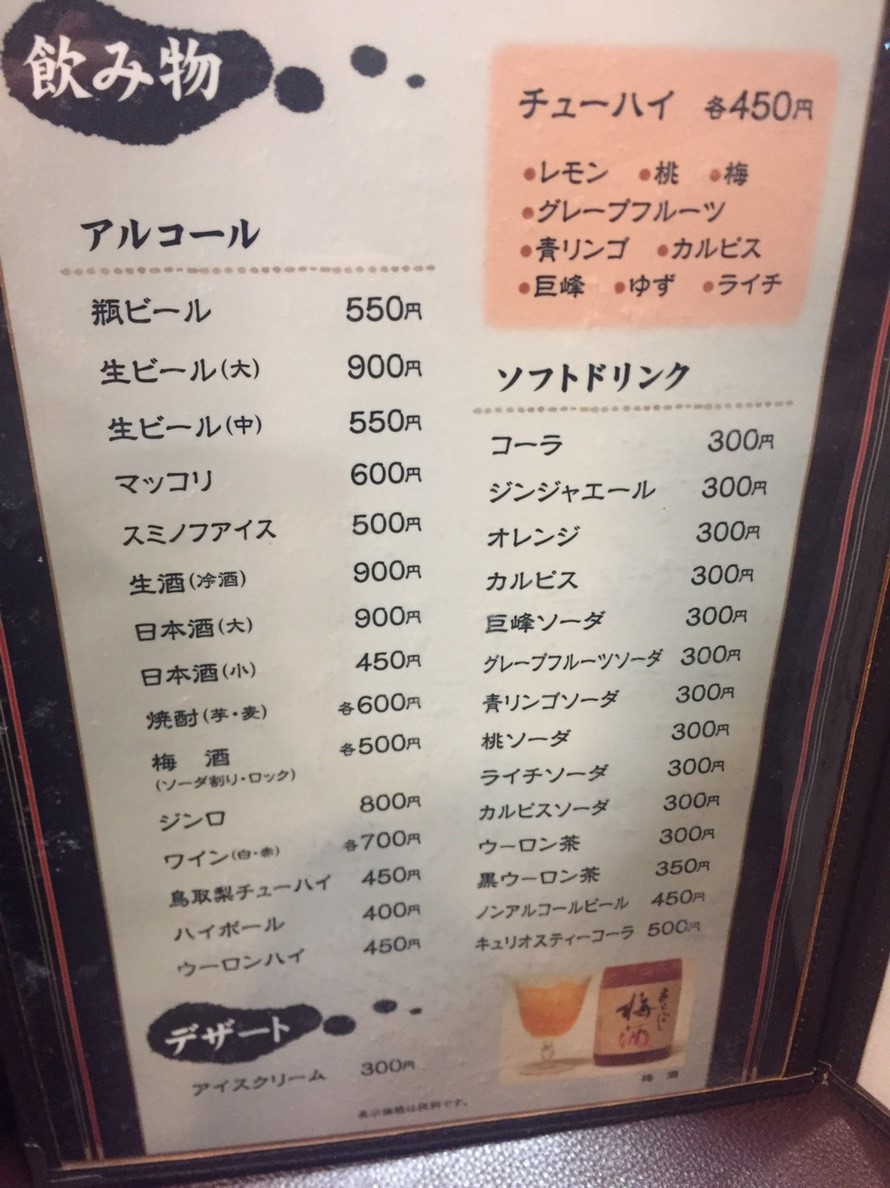 飲み物
アルコール
瓶ビール 550円
生ビール(大) 900円
生ビール(中) 550円
マッコリ 600円
スミノフアイス 500円
生酒(冷酒) 900円
日本酒(大) 900円
日本酒(小) 450円
焼酎(芋・麦) 各600円
梅 酒 各500円
(ソーダ割り・ロック)
ジンロ 800円
ワイン(白・赤) 各700円
鳥取梨チューハイ 450円
ハイボール 400円
ウーロンハイ 450円
デザート
アイスクリーム 300円
チューハイ 各450円
●レモン ●桃 ●梅
●グレープフルーツ
●青リンゴ ●カルピス
●巨峰 ●ゆず ●ライチ
ソフトドリンク
コーラ 300円
ジンジャエール 300円
オレンジ 300円
カルピス 300円
巨峰ソーダ 300円
グレープフルーツソーダ 300円
青リンゴソーダ 300円
桃ソーダ 300円
ライチソーダ 300円
カルピスソーダ 300円
ウーロン茶 300円
黒ウーロン茶 350円
ノンアルコールビール 450円
キュリオスティーコーラ 500円
梅酒
梅 酒
表示価格は税別です。